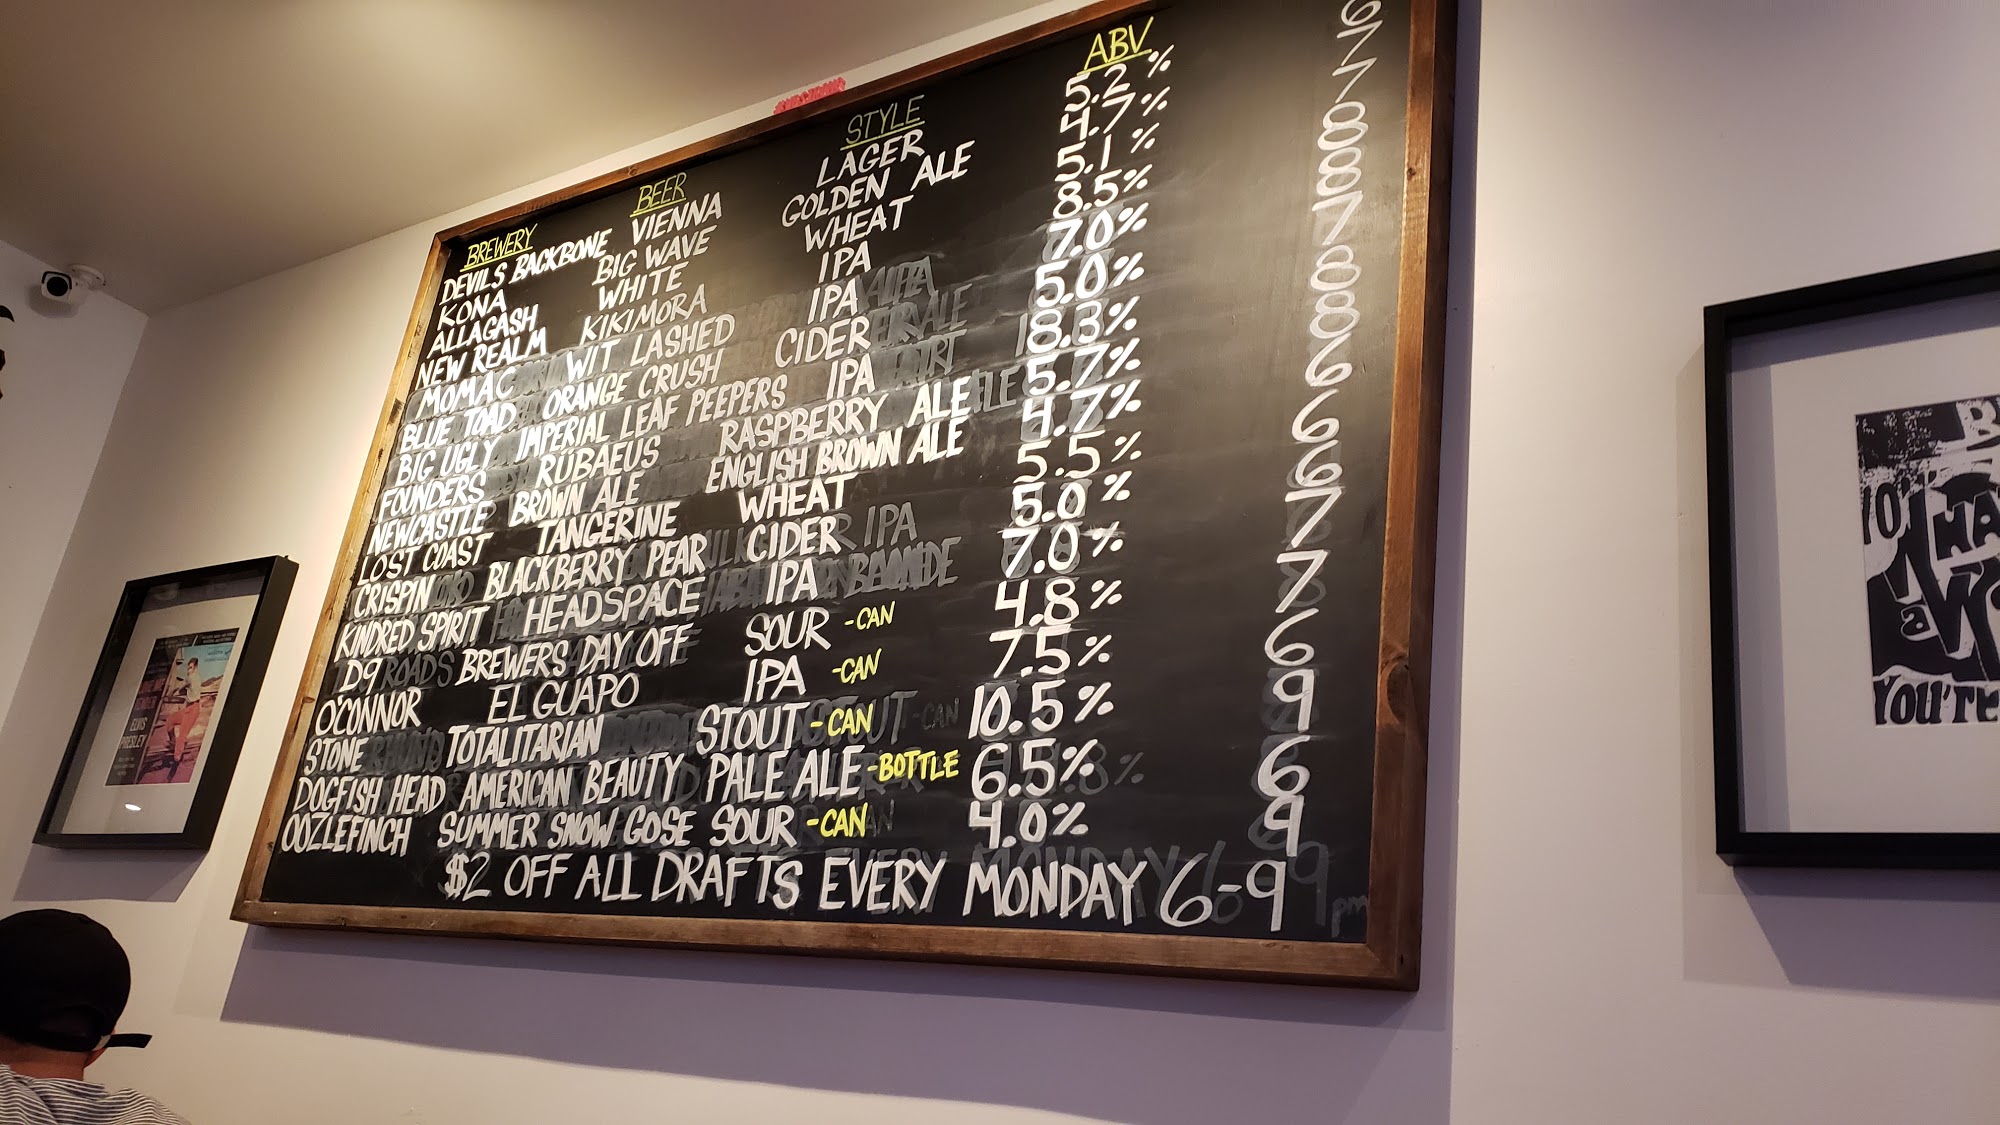 BREWERY BEER STYLE ABV
DEVILS BACKBONE VIENNA LAGER 5.2% 6
KONA BIG WAVE GOLDEN ALE 4.7% 7
ALLAGASH WHITE WHEAT 5.1% 7
NEW REALM KIKIMORA IPA 8.5% 8
MOMAC WIT LASHED IPA 7.0% 8
BLUE TOAD ORANGE CRUSH CIDER 5.0% 7
BIG UGLY IMPERIAL LEAF PEEPERS IPA 8.3% 8
FOUNDERS RÜBAEUS RASPBERRY ALE 5.7% 8
NEWCASTLE BROWN ALE ENGLISH BROWN ALE 4.7% 6
LOST COAST TANGERINE WHEAT 5.5% 6
CRISPIN BLACKBERRY PEAR CIDER 5.0% 6
KINDRED SPIRIT HEADSPACE IPA 7.0% 7
D9 BREWERS DAY OFF SOUR -CAN 4.8% 7
O'CONNOR EL GUAPO IPA -CAN 7.5% 6
STONE TOTALITARIAN STOUT -CAN 10.5% 9
DOGFISH HEAD AMERICAN BEAUTY PALE ALE -BOTTLE 6.5% 6
OOZLEFINCH SUMMER SNOW GOSE SOUR -CAN 4.0% 9
$2 OFF ALL DRAFTS EVERY MONDAY 6-9 pm
ELVIS
PRESLEY
YOU'RE